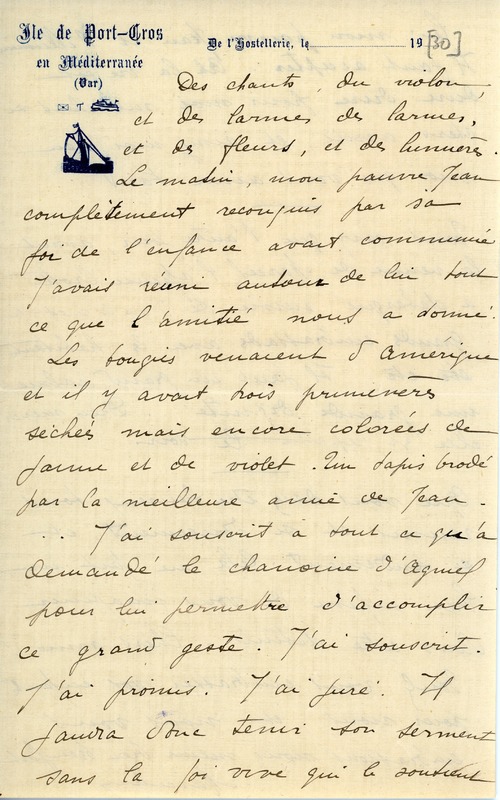 Ile de Port-Cros
en Méditerranée
(Var)
De l'Hostellerie, le 19 [30]
Des chants, du violon,
et des larmes, des larmes,
et des fleurs, et des lumières.
Le matin, mon pauvre Jean
complètement reconquis par sa
foi de l'enfance avait communié
J'avais réuni autour de lui tout
ce que l'amitié nous a donné.
Les bougies venaient d'Amérique
et il y avait trois primevères
séchées mais encore colorées de
jaune et de violet. Un tapis brodé
par la meilleure amie de Jean.
... J'ai souscrit à tout ce qu'a
demandé le chanoine d'Agnel
pour lui permettre d'accomplir
ce grand geste. J'ai souscrit.
J'ai promis. J'ai juré. Il
faudra donc tenir son serment
sans la foi vive qui le soutient